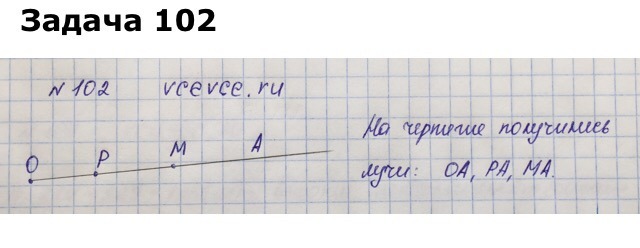 Задача 102
N 102 vcevce.ru
На чертеже получились
лучи: OA, PA, MA.
O P M A